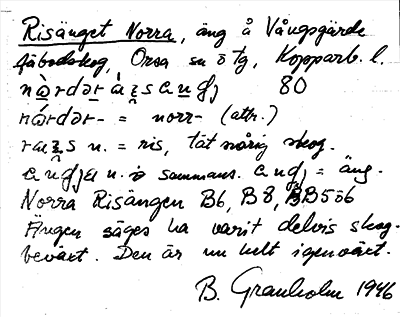 Risänget Norra, äng å Vångsgärde
fäbodskog, Orsa sn ötg, Kopparb. l.
80
= norr- (attr.)
n. = ris, tät snårig skog.
n. i sammans. = äng.
Norra Risängen B6, B8, BB5ö6
Ängen säges ha varit delvis skog-
beväxt. Den är nu helt igenväxt.
B. Granholm 1946